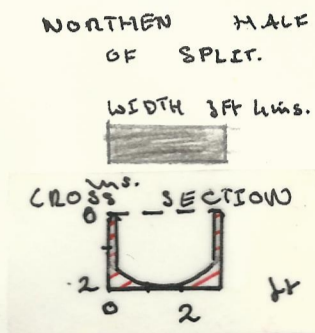 NORTHEN HALF
OF SPLIT.
WIDTH 3Ft 4ins.
CROSS SECTION
ins.
0
2
0 2 ft